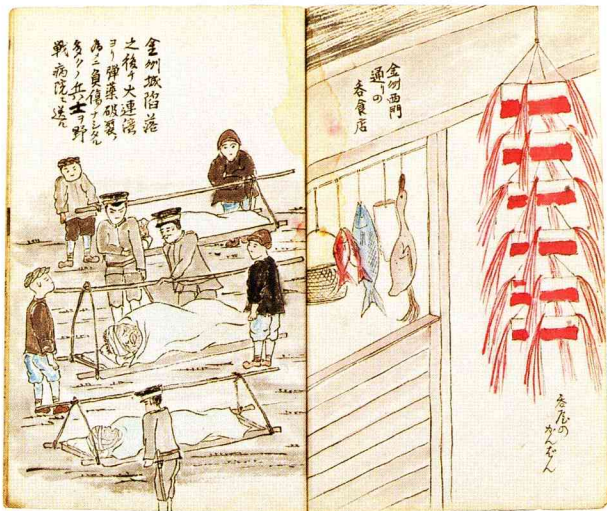 金州西門
通りの
呑食店
呑屋の
かんばん
金州城陥落
之後チ大連湾
ヨリ弾薬破裂
為ニ負傷ナシタル
多クノ兵士ヲ野
戦病院ニ送ル